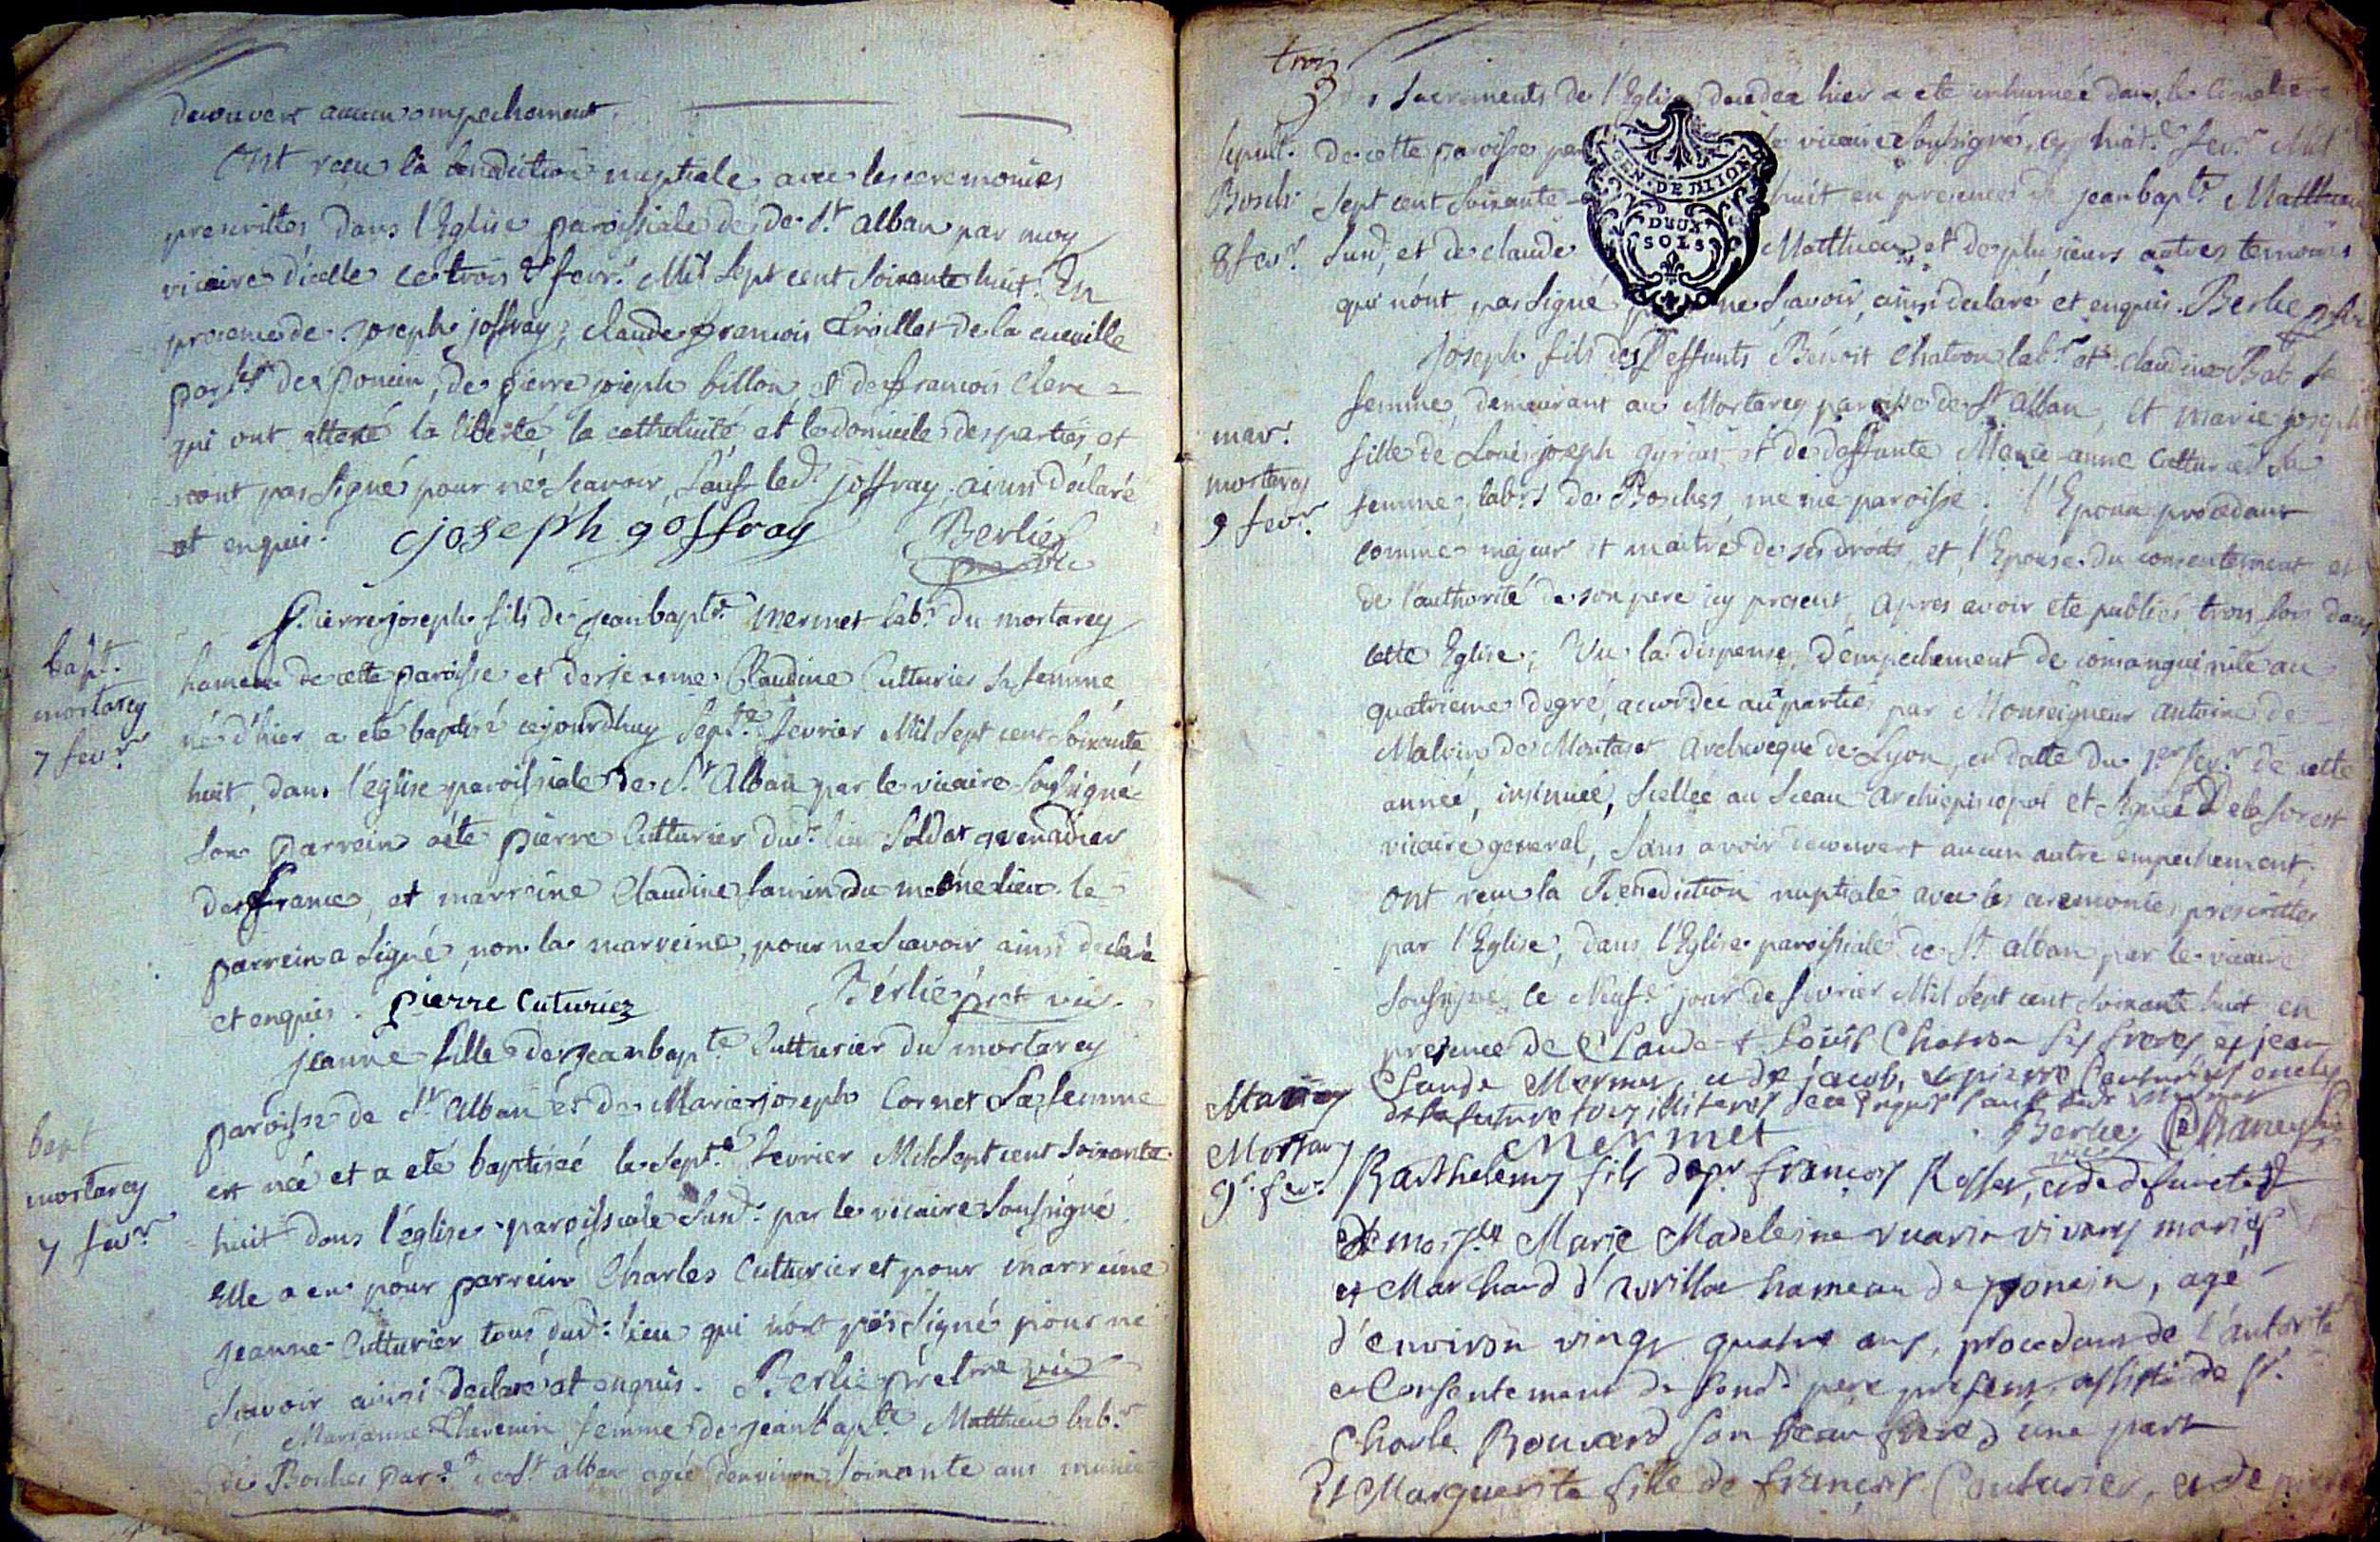 decouvert aucun empechement.
Ont reçu la benediction nuptiale avec les ceremonies
prescrittes dans l'Eglise paroissiale de de St alban par moy
vicaire d'icelle ce trois e fevr. Mil sept cent soixante huit. En
presence de joseph joffray, claude francois de la cueuille
par.sse de poncin, de pierre joseph billon, et de francois Clerc
qui ont attesté la liberté la catholicité et le domicile des parties et
n'ont pas signé pour ne scavoir, sauf led. joffray ainsi déclaré
et enquis. joseph goffray Berlie
ptre vic
bapt.
mortarey
7 fevr
Pierre joseph fils de jean bapte. mermet lab.r du mortarey
hameau de cette paroisse et de jeanne Claudine Cutturier sa femme
né d'hier a eté baptisé cejourdhuy sept.e fevrier Mil sept cent soixante
huit, dans l'eglise paroissiale de St Alban par le vicaire soussigné
son parrein a ete pierre Cutturier dud. lieu soldat grenadier
de france, et marreine Claudine du même lieu. le
parrein a signé, non la marreine, pour ne scavoir ainsi declaré
et enquis. pierre Cuturiez Berlie pret vic.
bapt
mortarey
7 fevr
jeanne fille de jean bapte Cutturier du mortarey
paroisse de St Alban et de Marie joseph Cornet sa femme
est née et a eté baptiséé le sept.e fevrier Mil sept cent soixante
huit dans l'église paroissiale susd. par le vicaire soussigné.
Elle a eu pour parrein Charles Cutturier et pour marreine
jeanne Cutturier tous dud. lieu qui n'ont pas signé pour ne
scavoir ainsi declaré et enquis. Berlie prêtre vic
Marianne Thevenin femme de jean bapte. Matthieu lab.r
de Bosches par.e de St alban agée d'environ soixante ans munie
trois
des sacrements de l'Eglise decedée hier a eté inhumée dans le cimetiere
sepult. de cette paroisse par le vicaire soussigné, ce huit.e fevr. Mil
Bosch. sept cent soixante huit en presence de jean bapte. Matthieu
8 fevr. susd, et de claude Matthieu, et de plusieurs autres temoins
qui n'ont pas signé ne scavoir, ainsi declaré et enquis. Berlie
GEN. DE DIJON
DEUX
SOLS
joseph fils des deffunts Benoit Chatron lab.r et claudine Bab sa
femme, demeurant au Mortarey paroisse de St alban, et marie joseph
mar.
mortarey
9 fevr.
fille de Louis joseph et de deffunte Marie anne Cutturier sa
femme, lab.rs de Bosches, même paroisse. l'Epoux procedant
comme majeur et maitre de ses droits, et l'Epouse du consentement et
de l'authorité de son pere icy present, apres avoir ete publiés trois fois dans
cette Eglise; Vu la dispense d'empechement de consanguinité au
quatrieme degré, accordée au parties par Monseigneur antoine de
Malvin de Montazet Archeveque de Lyon, en datte du 1er fevr de cette
année, insinuée, scellée au sceau Archiepiscopal et signée Delaforest
vicaire general, sans avoir decouvert aucun autre empechement;
ont reçu la Benediction nuptiale avec les ceremonies prescrittes
par l'Eglise, dans l'Eglise paroissiale de St alban par le vicaire
soussigné, ce Neuf.e jour de fevrier Mil sept cent soixante huit en
presence de Claude et Louis Chatron ses freres et jean
Claude Mermet et de jacob, et pierre Couturier oncles
de la future tous illiteres sauf led. mermet
Mermet Berlie vic
Mariag
Mortarey
9e. fevr.
Barthelemy fils de sr francois et de defuncte
Marie Madeleine vivans mariés
et Marchand d' hameau de poncin, agé
d'environ vingt quatre ans, procedant de l'autorité
et Consentement de sond. pere present, assisté de sr.
Charle Bouvard son beau frere d'une part
Et Marguerite fille de francois Couturier, et de